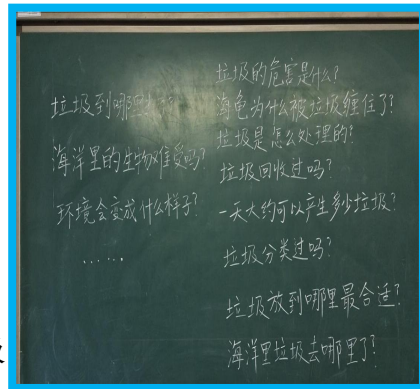 垃圾到哪
海洋里的生物难受吗?
环境会变成什么样子?
......
垃圾的危害是什么?
海龟为什么被垃圾缠住了?
垃圾是怎么处理的?
垃圾回收过吗?
一天大约可以产生多少垃圾?
垃圾分类过吗?
垃圾放到哪里最合适?
海洋里垃圾去哪里了?